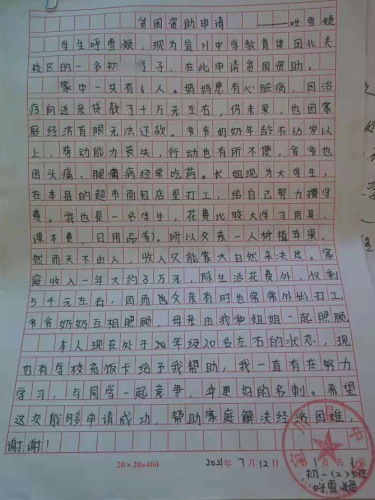 贫困资助申请 ——呼雪嫒
学生呼雪嫒,现为宜川中学教育集团北关
校区的一名初一学子,在此申请贫困资助。
家中一共有6人。妈妈患有心脏病,因治
疗向近亲贷款了十万元左右,仍未果,也因家
庭经济有限无法还款。爷爷奶奶年龄在65岁以
上,劳动能力丧失,行动也有所不便,爷爷也
因头痛、腿痛病经常吃药。长姐现为大学生,
在本县的超市面包店里打工,给自己努力攒学
费。我也是一名学生,花费比较大(学习用具、
课本费、日用品等)。所以父亲一人种植苹果,
然而天不由人,收入只能靠大自然来决定。家
庭收入一年大约3万元,除生活花费外,仅剩
5千元左右,因而我父亲有时也常常外出打工,
爷爷奶奶互相照顾,母亲由我和姐姐一起照顾。
本人现在处于年级20名左右的状态,现
也有学校免饭卡给予我帮助,我一直有在努力
学习,与同学一起竞争,冲更好的名列。希望
这次能够申请成功,帮助家庭解决经济困难,
谢谢!
20×20=400
2021年7月12日
第1页共1页
初一(2)班
呼雪嫒